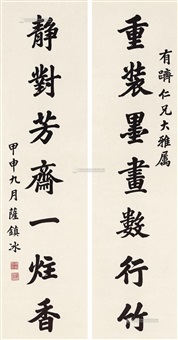 有躋仁兄大雅属
重裝墨畫數行竹
靜對芳齋一炷香
甲申九月薩鎮冰